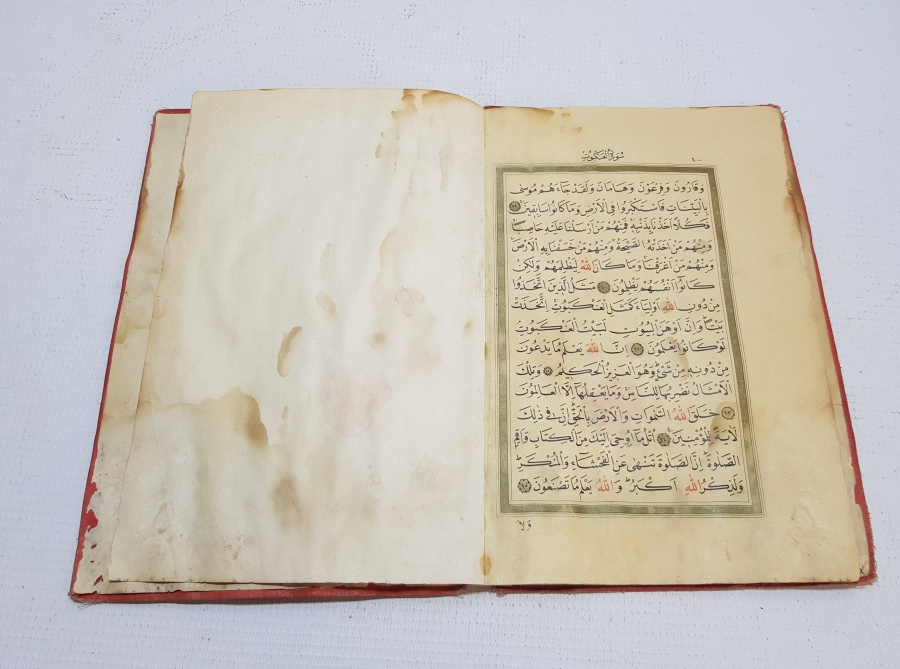 ١٠٠
سُورَةُ الْعَنْكَبُوتِ
وَقَارُونَ وَفِرْعَوْنَ وَهَامَانَ وَلَقَدْ جَاءَهُمْ مُوسٰى
بِالْبَيِّنَاتِ فَاسْتَكْبَرُوا فِى الْاَرْضِ وَمَا كَانُوا سَابِقِينَ
فَكُلًّا اَخَذْنَا بِذَنْبِهِ فَمِنْهُمْ مَنْ اَرْسَلْنَا عَلَيْهِ حَاصِبًا
وَمِنْهُمْ مَنْ اَخَذَتْهُ الصَّيْحَةُ وَمِنْهُمْ مَنْ خَسَفْنَا بِهِ الْاَرْضَ
وَمِنْهُمْ مَنْ اَغْرَقْنَا وَمَا كَانَ اللهُ لِيَظْلِمَهُمْ وَلٰكِنْ
كَانُوا اَنْفُسَهُمْ يَظْلِمُونَ مَثَلُ الَّذِينَ اتَّخَذُوا
مِنْ دُونِ اللهِ اَوْلِيَاءَ كَمَثَلِ الْعَنْكَبُوتِ اِتَّخَذَتْ
بَيْتًا وَاِنَّ اَوْهَنَ الْبُيُوتِ لَبَيْتُ الْعَنْكَبُوتِ
لَوْ كَانُوا يَعْلَمُونَ اِنَّ اللهَ يَعْلَمُ مَا يَدْعُونَ
مِنْ دُونِهِ مِنْ شَىْءٍ وَهُوَ الْعَزِيزُ الْحَكِيمُ وَتِلْكَ
الْاَمْثَالُ نَضْرِبُهَا لِلنَّاسِ وَمَا يَعْقِلُهَا اِلَّا الْعَالِمُونَ
خَلَقَ اللهُ السَّمٰوَاتِ وَالْاَرْضَ بِالْحَقِّ اِنَّ فِى ذٰلِكَ
لَاٰيَةً لِلْمُؤْمِنِينَ اُتْلُ مَا اُوحِىَ اِلَيْكَ مِنَ الْكِتَابِ وَاَقِمِ
الصَّلٰوةَ اِنَّ الصَّلٰوةَ تَنْهٰى عَنِ الْفَحْشَاءِ وَالْمُنْكَرِ
وَلَذِكْرُ اللهِ اَكْبَرُ وَاللهُ يَعْلَمُ مَا تَصْنَعُونَ
وَلَا